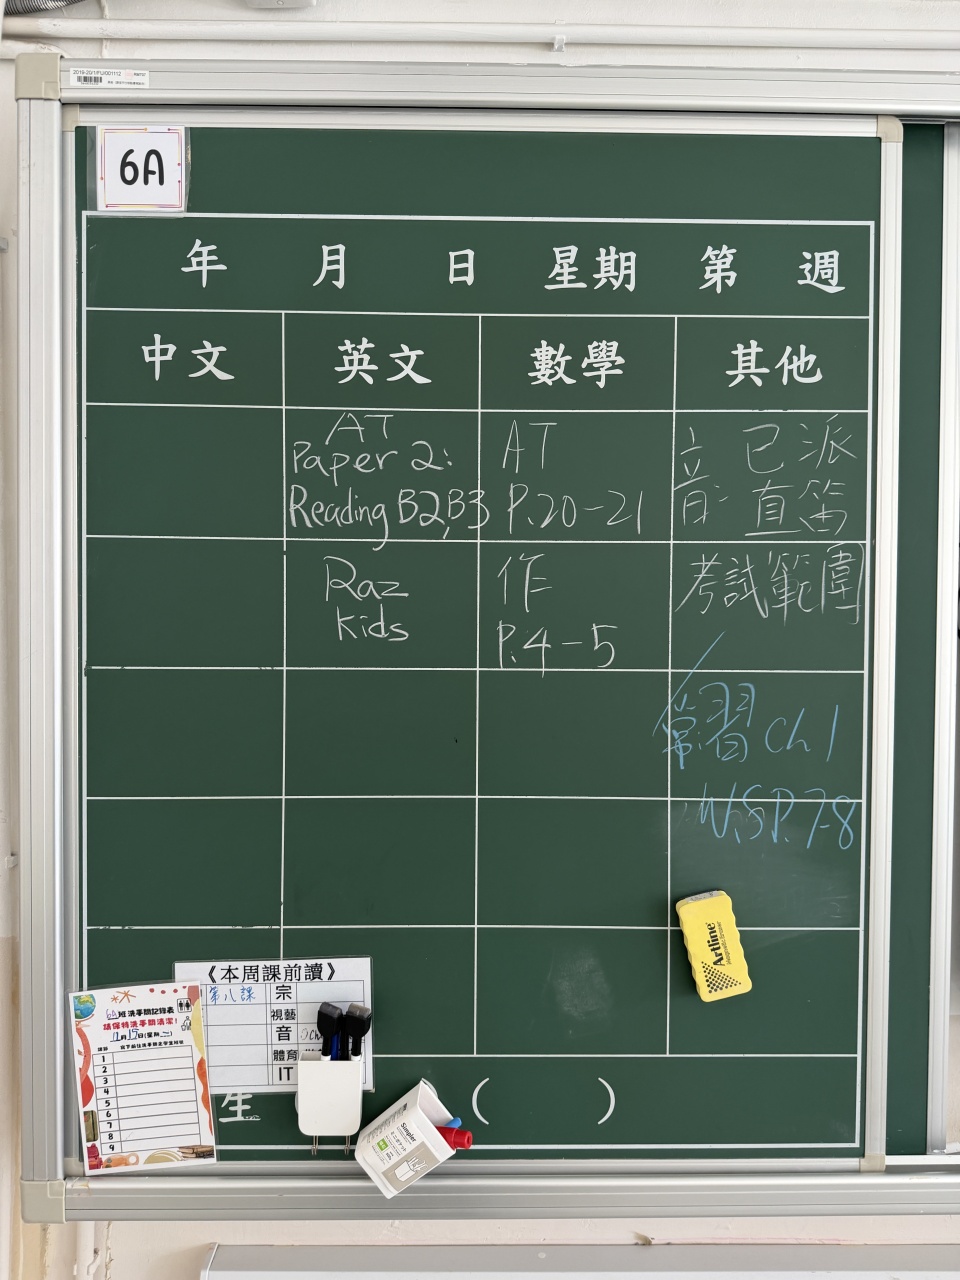 2019-20/1/FU/001112
6A
年 月 日 星期 第 週
中文 英文 數學 其他
AT
Paper 2:
Reading B2,B3
AT
P.20-21
音 已派
直笛
Raz
kids
作
P.4-5
考試範圍
常習 Ch 1
W.S P.7-8
Artline
《本周課前讀》
第八課 宗
視藝
音
體育
IT
6A班洗手間記錄表
請保持洗手間清潔!
1
2
3
4
5
6
7
8
9
生 ( )
Simpler